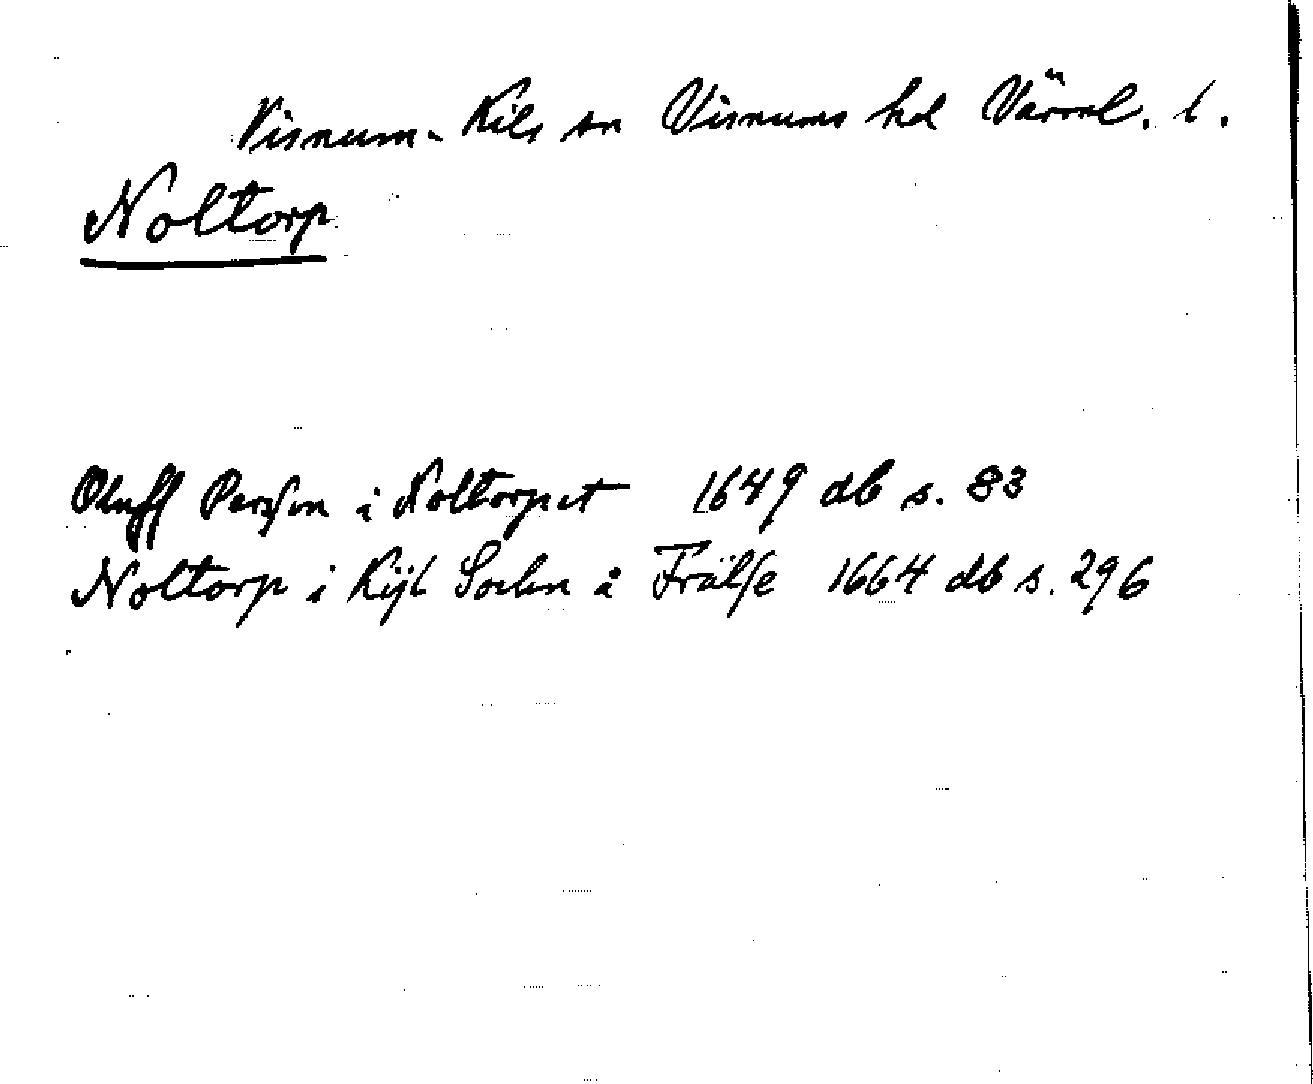 Visnum-Kils sn Visnums hd Värml. l.
Noltorp
Oluff Persson i Noltorpet 1649 db s. 83
Noltorp i Kijl Sochn å Frälse 1664 db s. 296